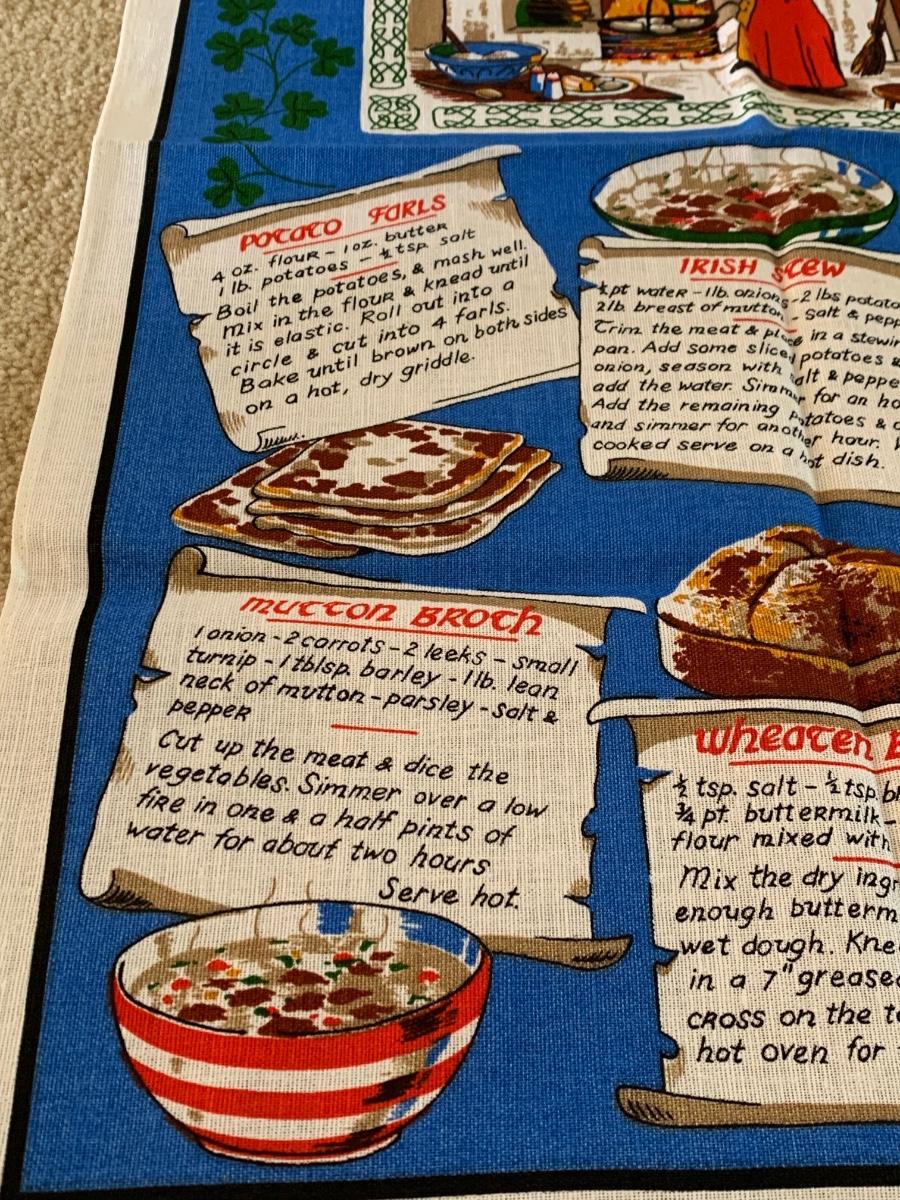 POTATO FARLS
4 oz. flour - 1 oz. butter
1 lb. potatoes - ½ tsp. salt
Boil the potatoes, & mash well.
Mix in the flour & knead until
it is elastic. Roll out into a
circle & cut into 4 farls.
Bake until brown on both sides
on a hot, dry griddle.
IRISH STEW
½pt water - 1lb. onions - 2 lbs
2lb. breast of mutton - salt &
Trim the meat & place in a
pan. Add some sliced potatoes &
onion, season with salt &
add the water. Simmer for an
Add the remaining potatoes &
and simmer for another hour.
cooked serve on a hot dish.
MUTTON BROTH
1 onion - 2 carrots - 2 leeks - small
turnip - 1 tblsp. barley - 1 lb. lean
neck of mutton - parsley - salt &
pepper
Cut up the meat & dice the
vegetables. Simmer over a low
fire in one & a half pints of
water for about two hours
Serve hot.
Wheaten
½ tsp. salt - ½ tsp.
¾ pt. buttermilk -
flour mixed with
Mix the dry
enough
wet dough.
in a 7" greased
cross on the
hot oven for